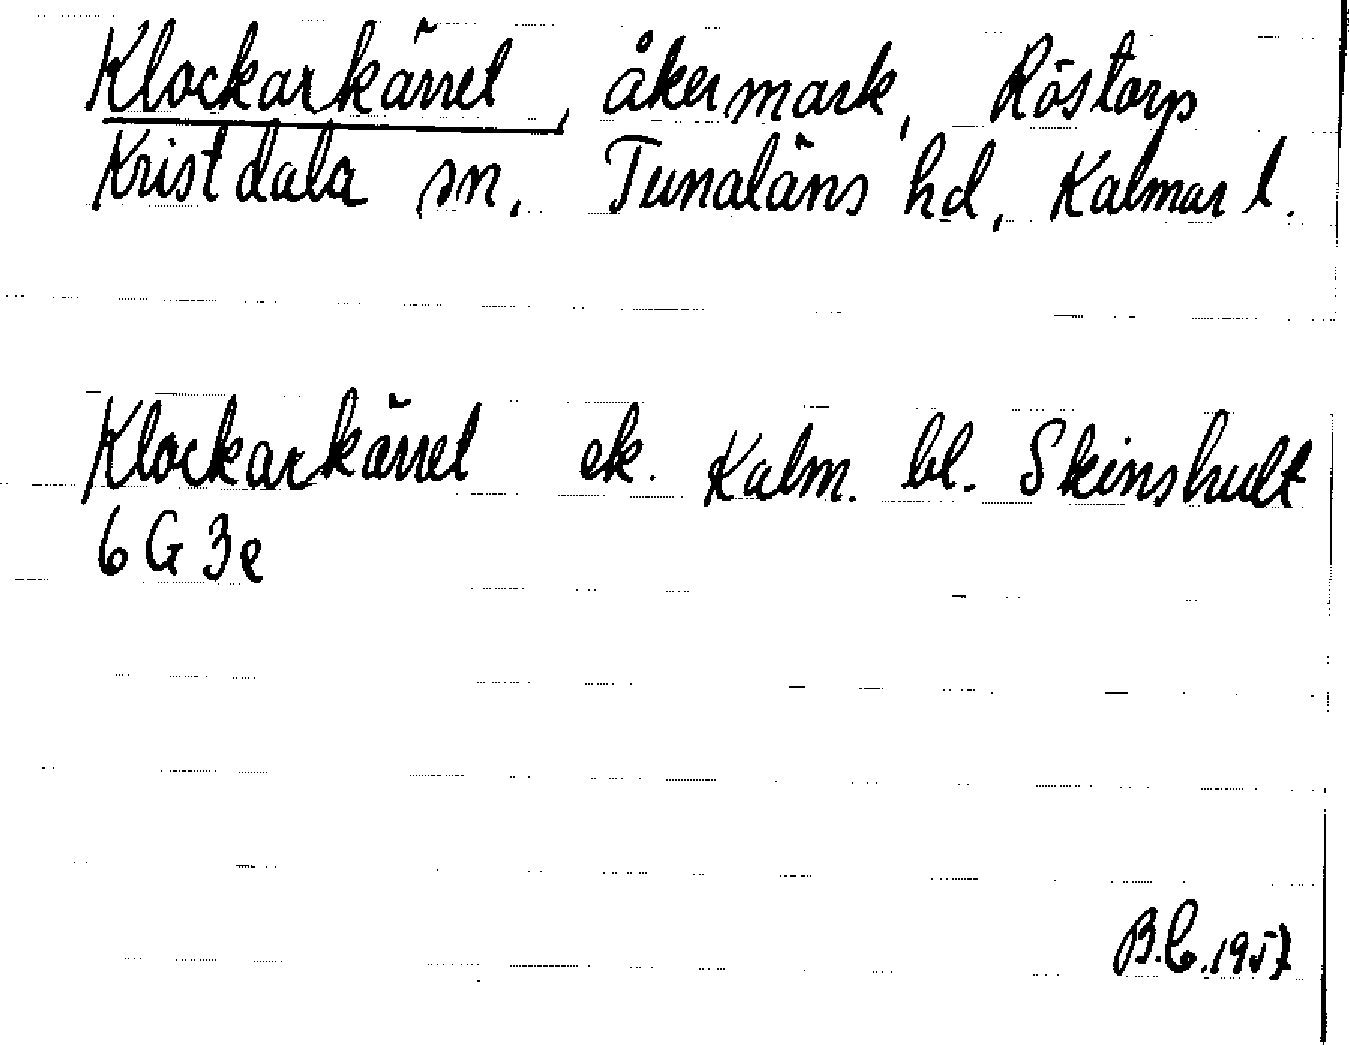 Klockarkärret, åkermark, Röstorp
Kristdala sn, Tunaläns hd, Kalmar l.
Klockarkärret ek. Kalm. bl. Skinshult
6 G 3e
B.C. 1957